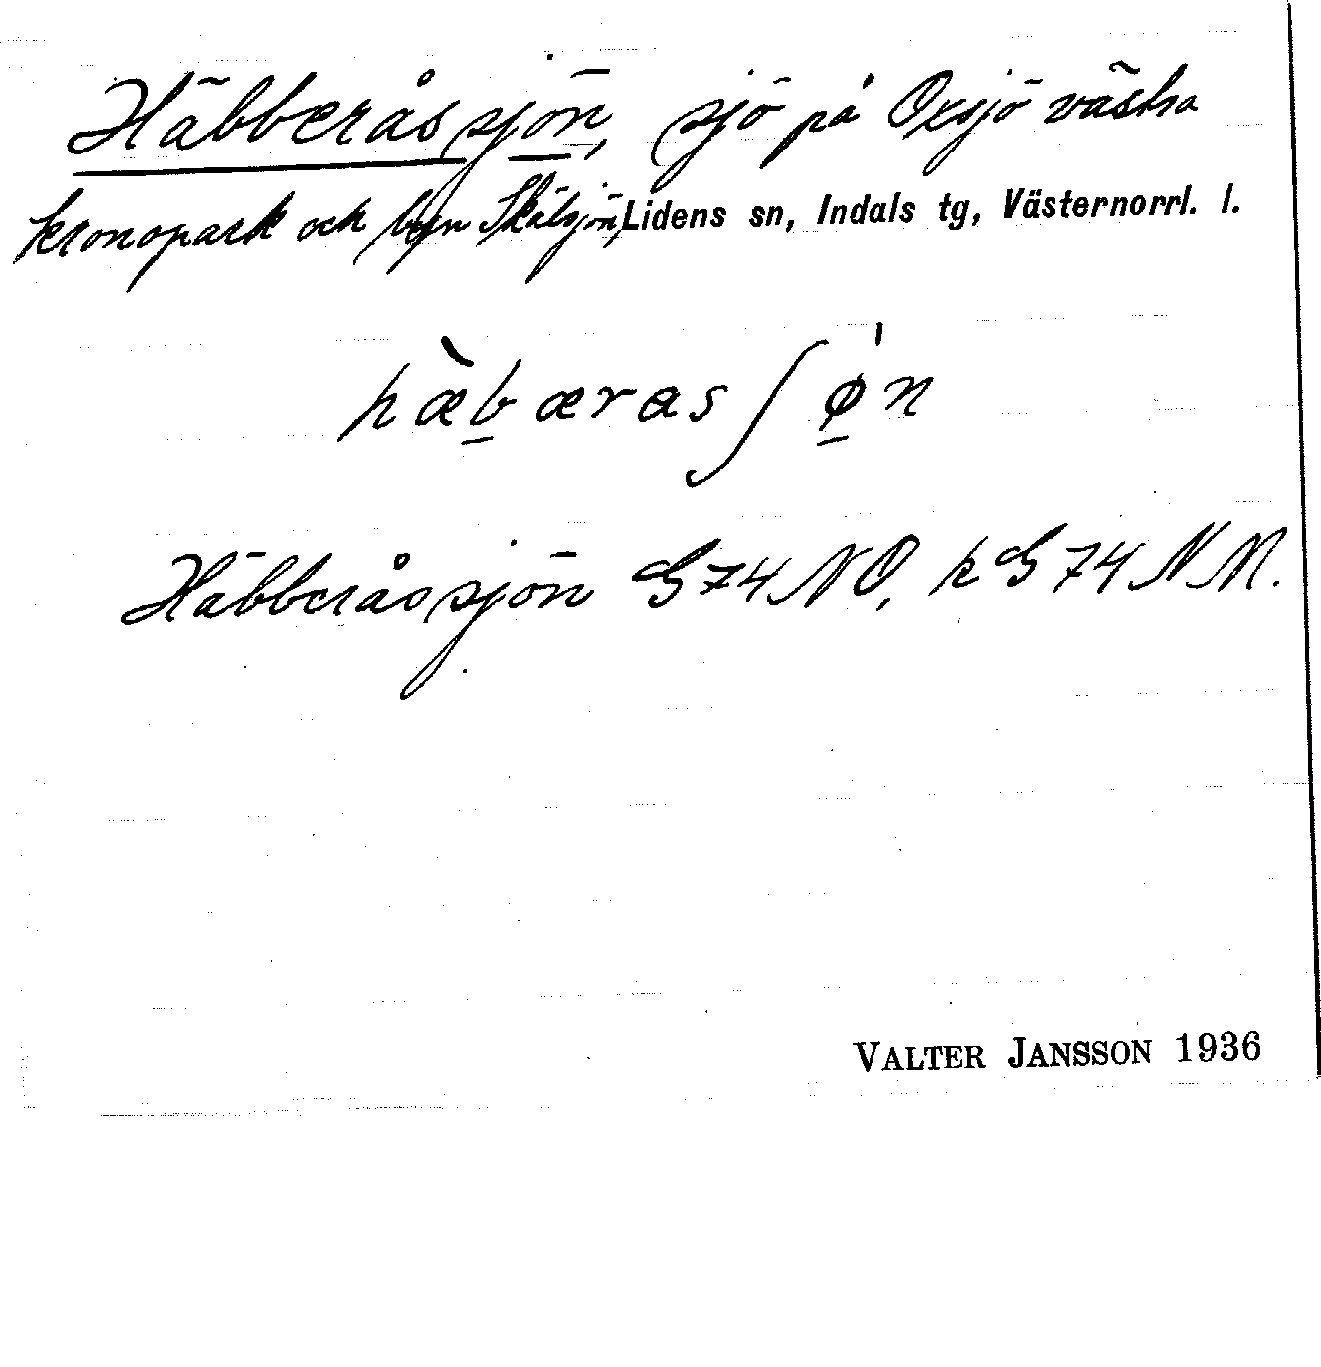 Häbberåssjön, sjö på Oxsjö västra
kronopark och byn Skälsjön, Lidens sn, Indals tg, Västernorrl. l.
hæ̀b̲æras ʃø̲̍n
Häbberåssjön G 74 NO, k G 74 NM.
VALTER JANSSON 1936